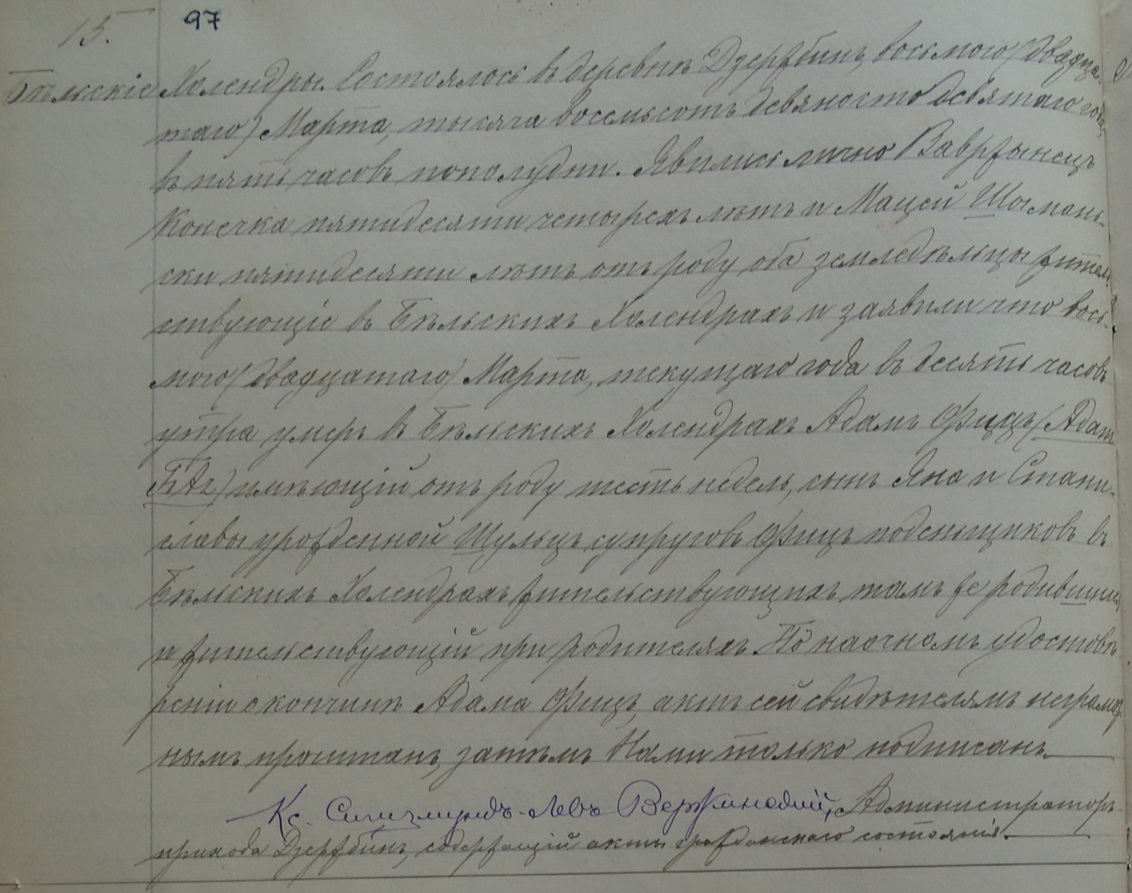 15. 97
Бѣлскіе Холендры. Состоялось въ деревнѣ Дзержбинъ, восьмого (двадца-
таго) Марта, тысяча восемьсотъ девяносто девятаго года,
въ пять часовъ пополудни. Явились лично Вавржынецъ
Конечка пятидесяти четырехъ лѣтъ и Мацей Шымань-
ски пятидесяти лѣтъ отъ роду оба земледѣльцы жител-
ствующіе въ Бѣлскихъ Холендрахъ и заявили что вось-
мого (двадцатаго) Марта, текущаго года въ десять часовъ
утра умеръ въ Бѣлскихъ Холендрахъ Адамъ Фицъ (Adam
) имѣющій отъ роду шесть недель, сынъ Яна и Стани-
славы урожденной Шульцъ супруговъ Фицъ поденщиковъ въ
Бѣлскихъ Холендрахъ жительствующихъ тамъ же родившійся
и жительствующій при родителяхъ. По наочномъ удостовѣ-
реніи о кончинѣ Адама Фицъ, актъ сей свидѣтелямъ неграмот-
нымъ прочитанъ, затѣмъ Нами только подписанъ
Кс. Сигизмундъ-Левъ Вержинскій, Администраторъ
прихода Дзержбинъ, содержащій акты гражданскаго состоянія.